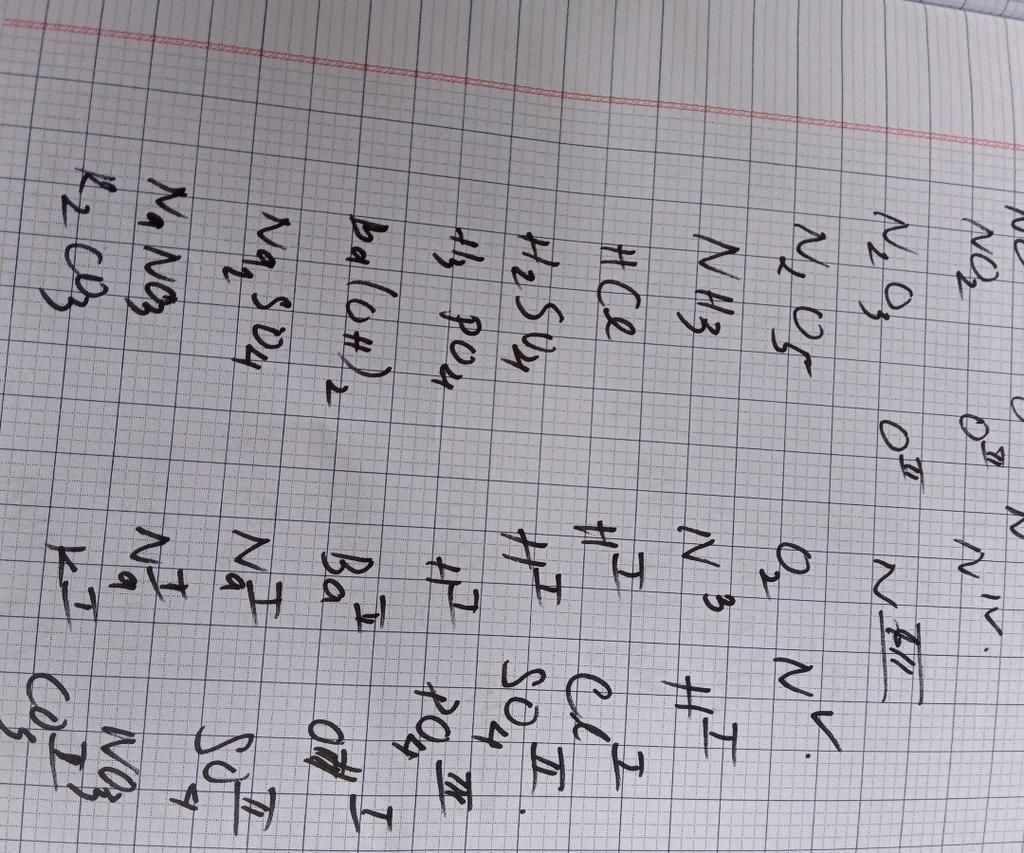 NO2 O^II N^IV.
N2O3 O^II N^III
N2O5 O2 N^V.
NH3 N^3 H^I
HCl H^I Cl^I
H2SO4 H^I SO4^II.
H3PO4 H^I PO4^III
Ba(OH)2 Ba^II OH^I
Na2SO4 Na^I SO4^II
NaNO3 Na^I NO3^I
K2CO3 K^I CO3